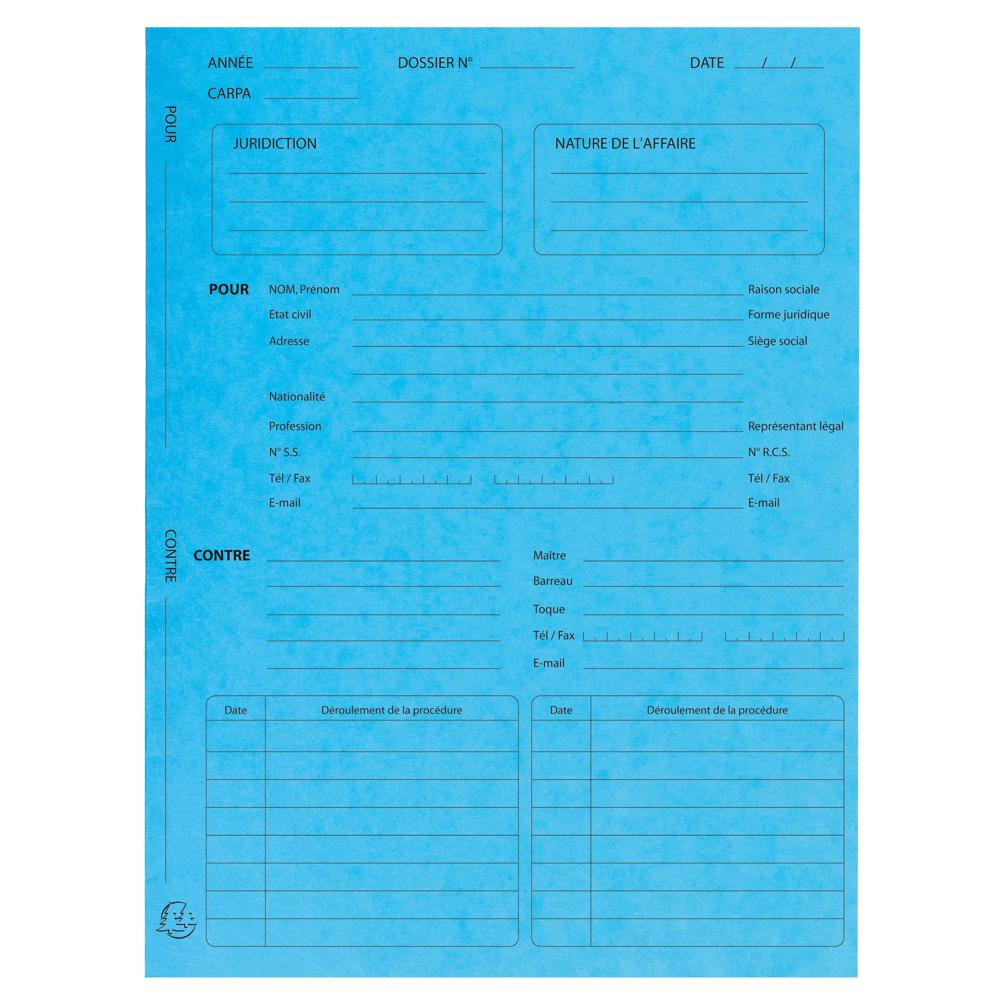 ANNÉE DOSSIER N° DATE / /
CARPA
POUR
JURIDICTION NATURE DE L'AFFAIRE
POUR NOM, Prénom Raison sociale
Etat civil Forme juridique
Adresse Siège social
Nationalité
Profession Représentant légal
N° S.S. N° R.C.S.
Tél / Fax Tél / Fax
E-mail E-mail
CONTRE
CONTRE Maître
Barreau
Toque
Tél / Fax
E-mail
Date Déroulement de la procédure Date Déroulement de la procédure